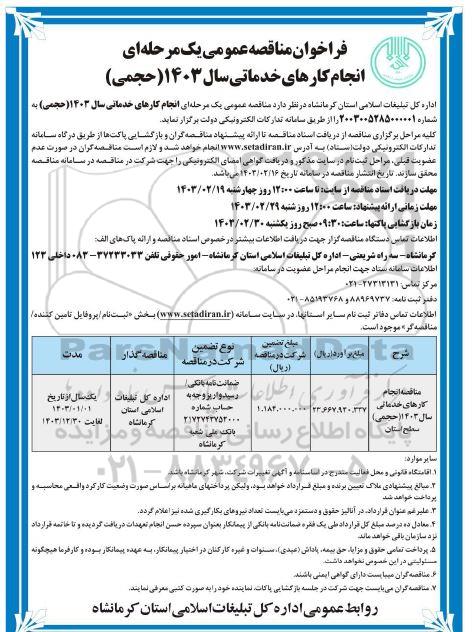 فراخوان مناقصه عمومی یک مرحله‌ای
انجام کارهای خدماتی سال ۱۴۰۳ (حجمی)
اداره کل تبلیغات اسلامی استان کرمانشاه در نظر دارد مناقصه عمومی یک مرحله‌ای انجام کارهای خدماتی سال ۱۴۰۳ (حجمی) به
شماره ۲۰۰۳۰۰۵۲۸۵۰۰۰۰۰۱ را از طریق سامانه تدارکات الکترونیکی دولت برگزار نماید.
کلیه مراحل برگزاری مناقصه از دریافت اسناد مناقصه تا ارائه پیشنهاد مناقصه‌گران و بازگشایی پاکت‌ها از طریق درگاه سامانه
تدارکات الکترونیکی دولت (ستاد) به آدرس www.setadiran.ir انجام خواهد شد و لازم است مناقصه‌گران در صورت عدم
عضویت قبلی، مراحل ثبت‌نام در سایت مذکور و دریافت گواهی امضای الکترونیکی را جهت شرکت در مناقصه در سامانه مناقصه
محقق سازند. تاریخ انتشار مناقصه در سامانه تاریخ ۱۴۰۳/۰۲/۱۶ می‌باشد.
مهلت دریافت اسناد مناقصه از سایت: تا ساعت ۱۲:۰۰ روز چهارشنبه ۱۴۰۳/۰۲/۱۹
مهلت زمانی ارائه پیشنهاد: ساعت ۱۲:۰۰ روز شنبه ۱۴۰۳/۰۲/۲۹
زمان بازگشایی پاکتها: ساعت ۰۹:۳۰ صبح روز یکشنبه ۱۴۰۳/۰۲/۳۰
اطلاعات تماس دستگاه مناقصه‌گزار جهت دریافت اطلاعات بیشتر در خصوص اسناد مناقصه و ارائه پاک‌های الف:
کرمانشاه - سه راه شریعتی - اداره کل تبلیغات اسلامی استان کرمانشاه - امور حقوقی تلفن ۳۷۲۳۳۰۳۳-۰۸۳ داخلی ۱۲۳
اطلاعات سامانه ستاد جهت انجام مراحل عضویت در سامانه:
مرکز تماس: ۲۷۳۱۳۱۳۱-۰۲۱
دفتر ثبت نامه: ۸۸۹۶۹۷۳۷ و ۸۵۱۹۳۷۶۸-۰۲۱
اطلاعات تماس دفاتر ثبت نام سایر استانها، در سایت سامانه (www.setadiran.ir) بخش «ثبت‌نام/پروفایل تامین کننده/
مناقصه‌گر» موجود است.
شرح | مبلغ برآورد (ریال) | مبلغ تضمین شرکت در مناقصه (ریال) | نوع تضمین شرکت در مناقصه | مناقصه گذار | مدت
مناقصه انجام کارهای خدماتی سال ۱۴۰۳ (حجمی) سطح استان | ۲۳.۶۶۷.۹۳۰.۳۳۷ | ۱.۱۸۴.۰۰۰.۰۰۰ | ضمانت نامه بانکی / رسید واریز وجه به حساب شماره ۲۱۷۲۷۴۲۷۵۲۰۰۰ بانک ملی شعبه کرمانشاه | اداره کل تبلیغات اسلامی استان کرمانشاه | یک‌سال از تاریخ ۱۴۰۳/۰۱/۰۱ لغایت ۱۴۰۳/۱۲/۳۰
سایر موارد:
۱. اقامتگاه قانونی و محل فعالیت مندرج در اساسنامه و آگهی تغییرات شرکت، شهر کرمانشاه باشد.
۲. مبالغ پیشنهادی ملاک تعیین برنده و مبلغ قرارداد خواهد بود، ولیکن پرداختهای ماهیانه براساس صورت وضعیت کارکرد واقعی محاسبه و
پرداخت خواهد شد
۳. علیرغم عنوان قرارداد، در آنالیز حقوق و دستمزد می‌بایست تعداد نیروهای بکارگیری شده نیز اعلام گردد.
۴. معادل ده درصد مبلغ کل قرارداد طی یک فقره ضمانت‌نامه بانکی از پیمانکار بعنوان سپرده حسن انجام تعهدات دریافت گردیده و تا خاتمه قرارداد
نزد سازمان باقی خواهد ماند.
۵. پرداخت تمامی حقوق و مزایا، حق بیمه، پاداش (عیدی)، سنوات و غیره کارکنان در اختیار پیمانکار، به عهده پیمانکار بوده و کارفرما هیچگونه
مسئولیتی در این خصوص نخواهد داشت.
۶. مناقصه‌گران میبایست دارای گواهی ایمنی باشند.
۷. مناقصه‌گران می‌بایست جهت شرکت در جلسه بازگشایی پاکات، نماینده خود را به صورت کتبی معرفی نمایند.
روابط عمومی اداره کل تبلیغات اسلامی استان کرمانشاه
ParsNamadData
۰۲۱-۸۸۳۴۹۶۷۰-۵